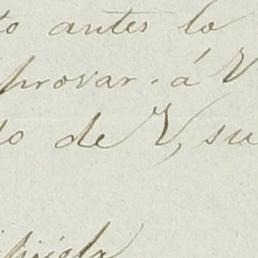 to antes lo
provar. á V
do de V, su